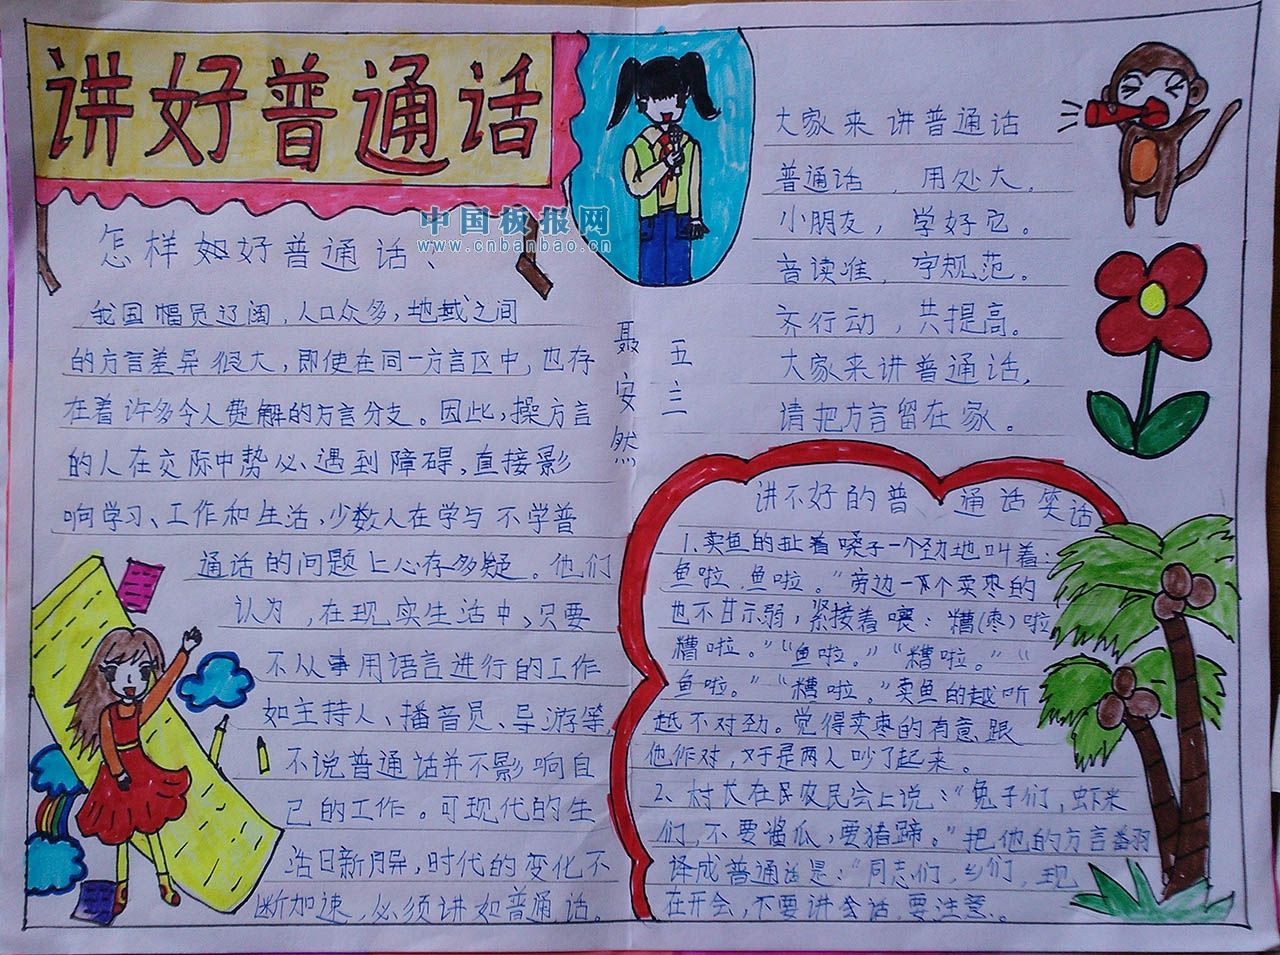 讲好普通话
中国板报网
www.cnbanbao.cn
怎样好普通话、
我国幅员辽阔,人口众多,地域之间
的方言差异很大,即使在同一方言区中,也存
在着许多令人费解的方言分支。因此,操方言
的人在交际中势必、遇到障碍,直接影
响学习、工作和生活、少数人在学与不学普
通话的问题上心存多疑。他们
认为,在现实生活中,只要
不从事用语言进行的工作
如主持人、播音员、导游等,
不说普通话并不影响自
己的工作。可现代的生
活日新月异,时代的变化不
断加速,必须讲好普通话。
聂安然
五三
大家来讲普通话
普通话,用处大。
小朋友,学好它。
音读准,字规范。
齐行动,共提高。
大家来讲普通话,
请把方言留在家。
讲不好的普通话笑话
1、卖鱼的扯着嗓子一个劲地叫着:
鱼啦,鱼啦。”旁边一个卖枣的
也不甘示弱,紧接着嚷:糟(枣)啦
糟啦。”“鱼啦。”“糟啦。”“
鱼啦。”“糟啦。”卖鱼的越听
越不对劲。觉得卖枣的有意跟
他作对,于是两人吵了起来。
2、村长在农民会上说:“兔子们,虾米
们,不要酱瓜,要猪蹄。”把他的方言翻
译成普通话是:“同志们,乡们,现
在开会,不要讲会话,要注意。